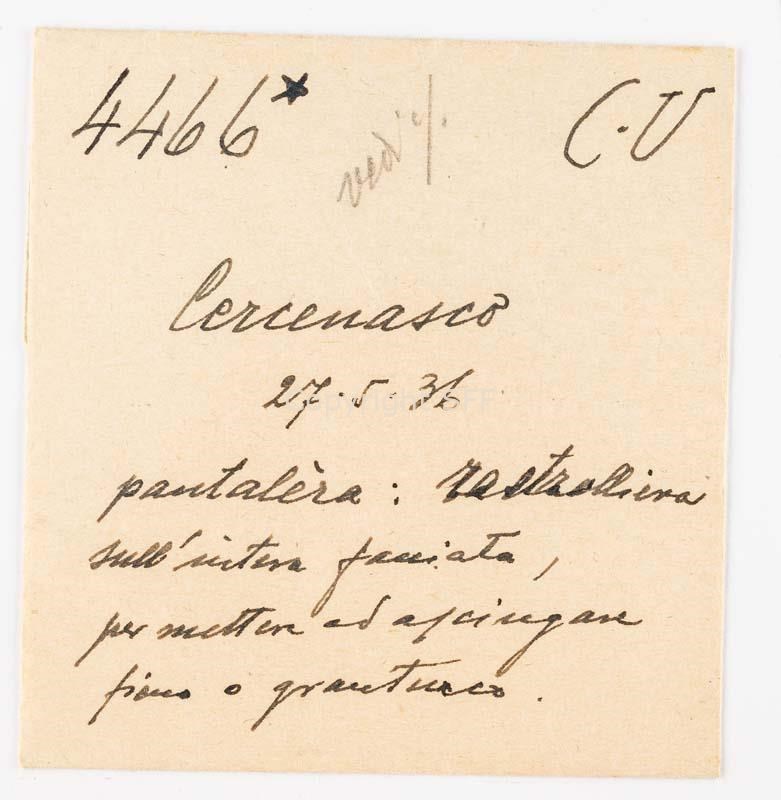 4466* C.U
Cercenasco
27.5 36
pantalèra: rastrelliera
sull'intera facciata,
per mettere ad asciugare
fieno o granturco.